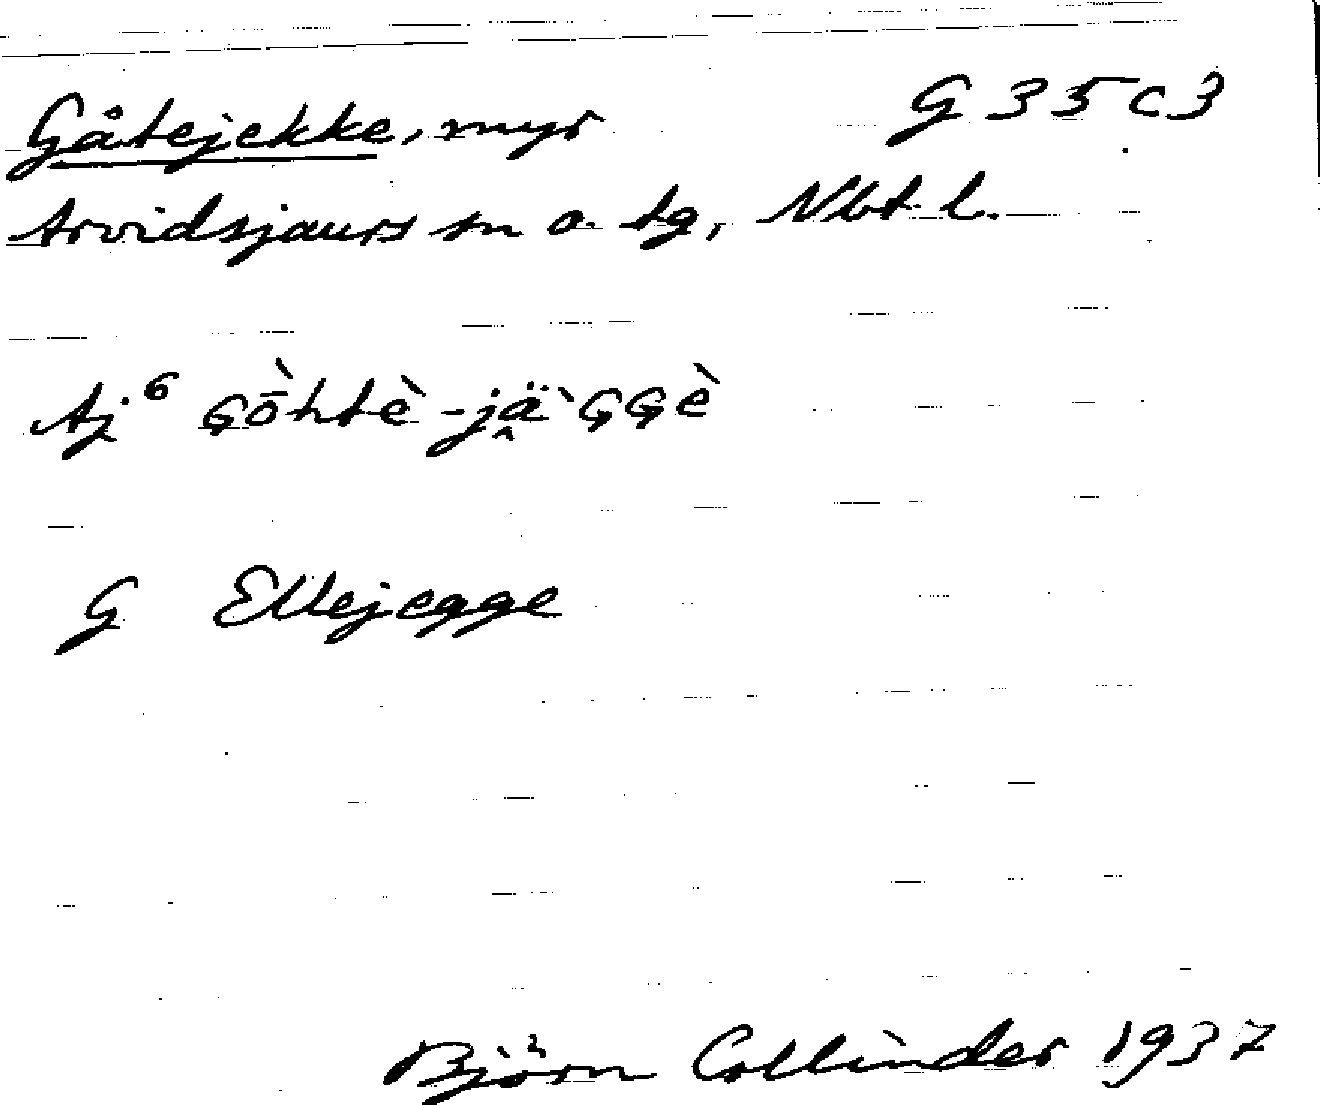 Gåtejekke, myr G 35 C 3
Arvidsjaurs sn o. tg, Nbt. l.
Aj⁶ G̣ṑhtè-jä̭̀G̣G̣è
G Ellejegge
Björn Collinder 1937